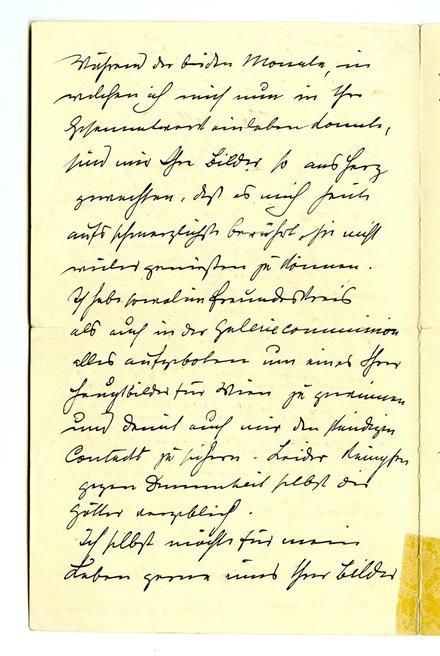 Während der beiden Monate, in
welchen ich mich nun in Ihr
Gesammtwerk einleben konnte,
sind mir Ihre Bilder so ans Herz
gewachsen, daß es mich heute
aufs schmerzlichste berührt, sie nicht
wieder geniessen zu können.
Ich habe sowol im Freundeskreis
als auch in der Galleriecommission
alles aufgeboten um eines Ihrer
Hauptbilder für Wien zu gewinnen
und damit auch mir den ständigen
Contact zu sichern. Leider kämpfen
gegen Dummheit selbst die
Götter vergeblich.
Ich selbst möchte für mein
Leben gerne eines Ihrer Bilder